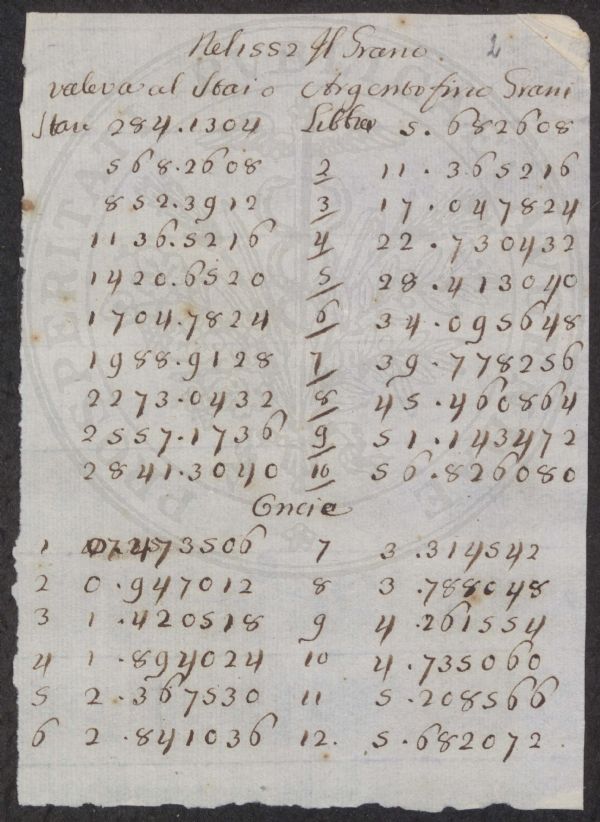 Nel 1552 Il Grano 2
valeva al Staio Argento fino Grani
Stau 284.1304 Libbra 5.682608
568.2608 2 11.365216
852.3912 3 17.047824
1136.5216 4 22.730432
1420.6520 5 28.413040
1704.7824 6 34.095648
1988.9128 7 39.778256
2273.0432 8 45.460864
2557.1736 9 51.143472
2841.3040 10 56.826080
Oncie
1 473506 7 3.314542
2 0.947012 8 3.788048
3 1.420518 9 4.261554
4 1.894024 10 4.735060
5 2.367530 11 5.208566
6 2.841036 12. 5.682072